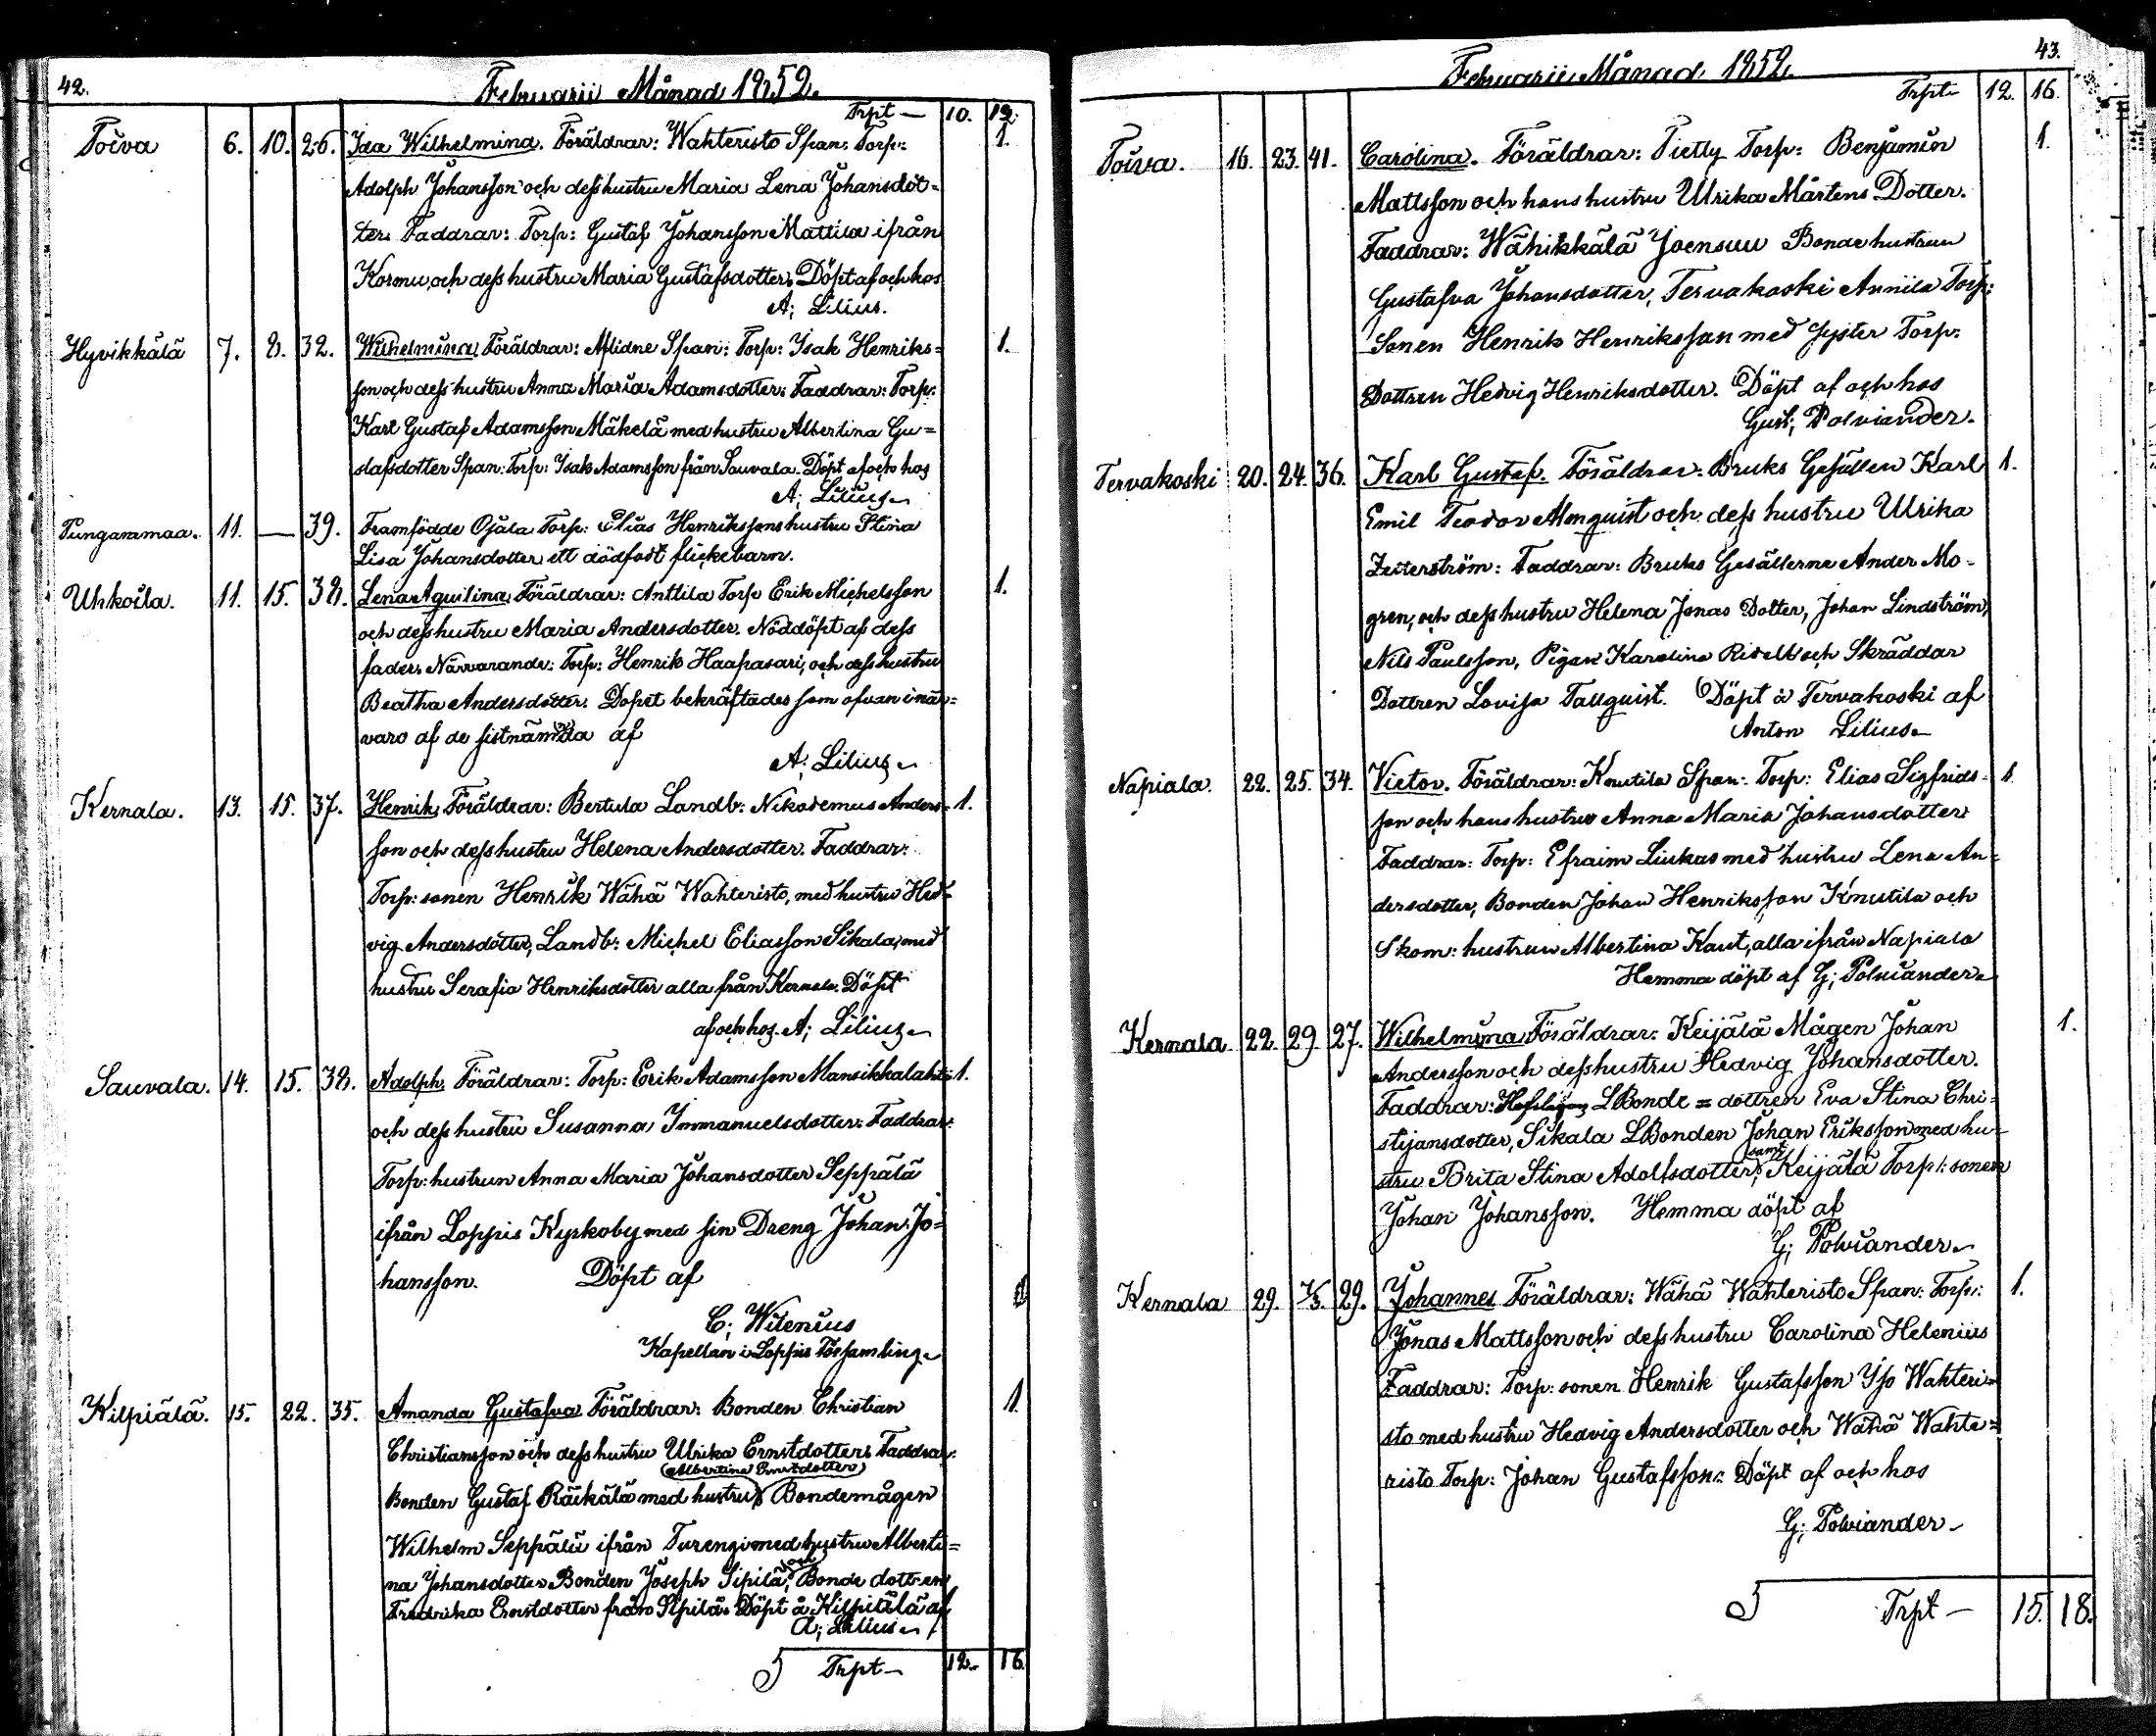 42.
Februarii Månad 1852.
Trpt — 10. 12.
Toiva 6. 10. 26. Ida Wilhelmina. Föräldrar: Wahteristo Span: Torp: 1.
Adolph Johansson och dess hustru Maria Lena Johansdot=
ter. Faddrar: Torp: Gustaf Johansson Mattila ifrån
Kormu, och dess hustru Maria Gustafsdotter. Döpt af och hos
A; Lilius.
Hyvikkälä 7. 8. 32. Wilhelmina, Föräldrar: Aflidne Span: Torp: Isak Henriks= 1.
son och dess hustru Anna Maria Adamsdotter: Faddrar: Torp:
Karl Gustaf Adamsson Mäkelä med hustru Albertina Gu=
stafsdotter Span: Torp: Isak Adamsson från Sauvala. Döpt af och hos
A; Lilius
Pungammaa. 11. — 39. Framfödde Ojala Torp: Elias Henrikssons hustru Stina
Lisa Johansdotter ett dödfödt flickebarn.
Uhkoila. 11. 15. 38. Lena Aquilina, Föräldrar: Anttila Torp Erik Michelsson 1.
och dess hustru Maria Andersdotter. Nöddöpt af dess
fader. Närvarande: Torp: Henrik Haapasari, och dess hustru
Beatha Andersdotter. Dopet bekräftades som ofvan i när=
varo af de sistnämnda af
A. Lilius
Kernala. 13. 15. 37. Henrik, Föräldrar: Bertula Landb: Nikodemus Anders= 1.
son och dess hustru Helena Andersdotter. Faddrar:
Torp: sonen Henrik Wähä Wahteristo, med hustru Hed=
vig Andersdotter, Landb: Michel Eliasson Sikala, med
hustru Serafia Henriksdotter alla från Kernala. Döpt
af och hos. A; Lilius
Sauvala. 14. 15. 38. Adolph, Föräldrar: Torp: Erik Adamsson Mansikkalahti 1.
och dess hustru Susanna Immanuelsdotter: Faddrar:
Torp: hustrun Anna Maria Johansdotter Seppälä
ifrån Loppis Kyrkoby med sin Dreng Johan Jo=
hansson. Döpt af
C; Widenius
Kapellan i Loppis Församling
Kilpiälä. 15. 22. 35. Amanda Gustafva Föräldrar: Bonden Christian 1.
Christiansson och dess hustru Ulrika Ernstdotter. Faddrar:
(Albertina Ernstdotter)
Bonden Gustaf Räikälä med hustru Bondemågen
Wilhelm Seppälä ifrån Turengi med hustru Alberti=
na Johansdotter Bonden Joseph Sipilä, och Bonde dottren
Fredrika Ernstdotter från Sipilä. Döpt å Kilpiälä af
A; Lilius
Trpt — 12. 16.
43.
Februarii Månad 1852.
Trpt 12. 16.
Toiva. 16. 23. 41. Carolina. Föräldrar: Pietty Torp: Benjamin 1.
Mattsson och hans hustru Ulrika Mårtens Dotter.
Faddrar: Wähikkälä Joensuu Bonde hustrun
Gustafva Johansdotter, Tervakoski Annila Torp:
Sonen Henrik Henriksson med syster Torp:
Dottren Hedvig Henriksdotter. Döpt af och hos
Gust; Polviander.
Tervakoski 20. 24. 36. Karl Gustaf. Föräldrar: Bruks Gesällen Karl 1.
Emil Teodor Almquist och dess hustru Ulrika
Zetterström: Faddrar: Bruks Gesällerne Ander Mo=
gren, och dess hustru Helena Jonas Dotter, Johan Lindström,
Nils Paulsson, Pigan Karolina Ridell och Skräddar
Dottren Lovisa Tallquist. Döpt å Tervakoski af
Anton Lilius
Napiala. 22. 25. 34. Victor. Föräldrar: Knutila Span: Torp: Elias Sigfrids= 1.
son och hans hustru Anna Maria Johansdotter
Faddrar: Torp: Efraim Liukas med hustru Lena An=
dersdotter, Bonden Johan Henriksson Knutila och
Skom: hustrun Albertina Kaut, alla ifrån Napiala
Hemma döpt af G; Polviander
Kernala 22. 29. 27. Wilhelmina, Föräldrar: Keijälä Mågen Johan 1.
Andersson och dess hustru Hedvig Johansdotter.
Faddrar: LBonde = dottren Eva Stina Chri=
stjansdotter, Sikala LBonden Johan Eriksson med hu=
stru Brita Stina Adolfsdotter, samt Keijälä Torp: sonen
Johan Johansson. Hemma döpt af
G; Polviander
Kernala 29. 7/3. 29. Johannes Föräldrar: Wähä Wahteristo Span: Torp: 1.
Jonas Mattsson och dess hustru Carolina Helenius
Faddrar: Torp: sonen Henrik Gustafsson Yso Wahteri=
sto med hustru Hedvig Andersdotter och Wähä Wahte=
risto Torp: Johan Gustafsson: Döpt af och hos
G; Polviander
Trpt — 15. 18.